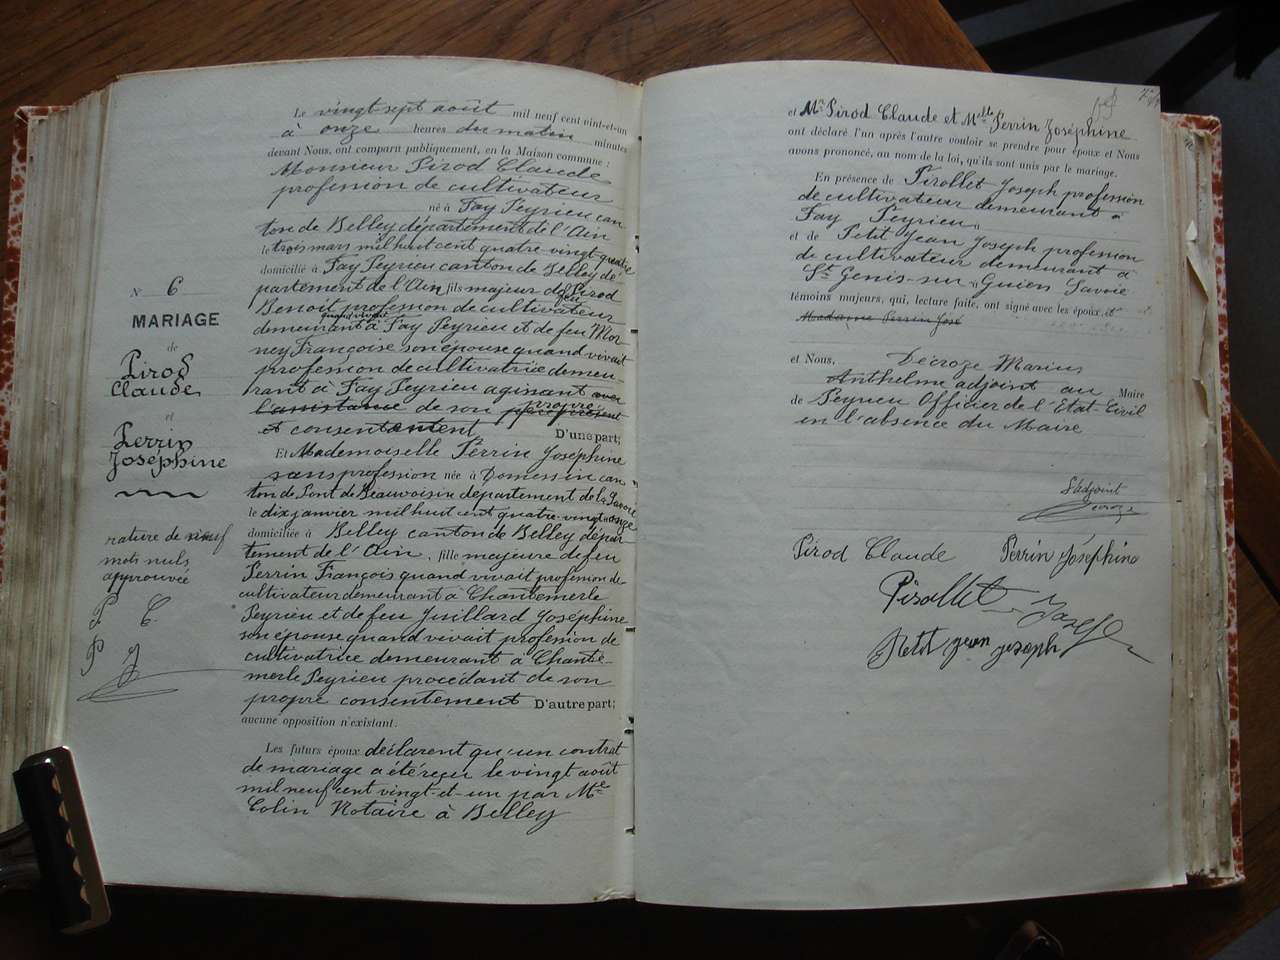 N° 6
MARIAGE
de
Pirod
Claude
et
Perrin
Joséphine
rature de neuf
mots nuls
approuvée
P C.
P J
Le vingt-sept août mil neuf cent vingt-et-un
à onze heures du matin minutes
devant Nous, ont comparu publiquement, en la Maison commune :
Monsieur Pirod Claude
profession de cultivateur
né à Fay Peyrieu can
ton de Belley département de l'Ain
le trois mars mil huit cent quatre-vingt-quatre
domicilié à Fay Peyrieu canton de Belley dé-
partement de l'Ain, fils majeur de feu Pirod
Benoit profession de cultivateur
quand vivait
demeurant à Fay Peyrieu et de feu Mor
ney Françoise son épouse quand vivait
profession de cultivatrice demeu-
rant à Fay Peyrieu agissant avec
l'assistance de son propre père présent
et consentement D'une part;
Et Mademoiselle Perrin Joséphine
sans profession née à Domessin can
ton de Pont de Beauvoisin département de la Savoie
le dix janvier mil huit cent quatre-vingt-onze
domiciliée à Belley canton de Belley dépar
tement de l'Ain, fille majeure de feu
Perrin François quand vivait profession de
cultivateur demeurant à Chantemerle
Peyrieu et de feu Juillard Joséphine
son épouse quand vivait profession de
cultivatrice demeurant à Chante-
merle Peyrieu procédant de son
propre consentement D'autre part;
aucune opposition n'existant.
Les futurs époux déclarent qu'un contrat
de mariage a été reçu le vingt août
mil neuf cent vingt-et-un par Me
Colin Notaire à Belley
et Mr Pirod Claude et Melle Perrin Joséphine
ont déclaré l'un après l'autre vouloir se prendre pour époux et Nous
avons prononcé, au nom de la loi, qu'ils sont unis par le mariage.
En présence de Pirollet Joseph profession
de cultivateur demeurant à
Fay Peyrieu
et de Petit Jean Joseph profession
de cultivateur demeurant à
St Genis-sur Guiers Savoie
témoins majeurs, qui, lecture faite, ont signé avec les époux, et
Madame Perrin José
et Nous, Décroze Marius
Anthelme adjoint au Maire
de Peyrieu Officier de l'Etat-Civil
en l'absence du Maire
L'adjoint
Décroze
Pirod Claude Perrin Joséphine
Pirollet Joseph
Petit jean joseph